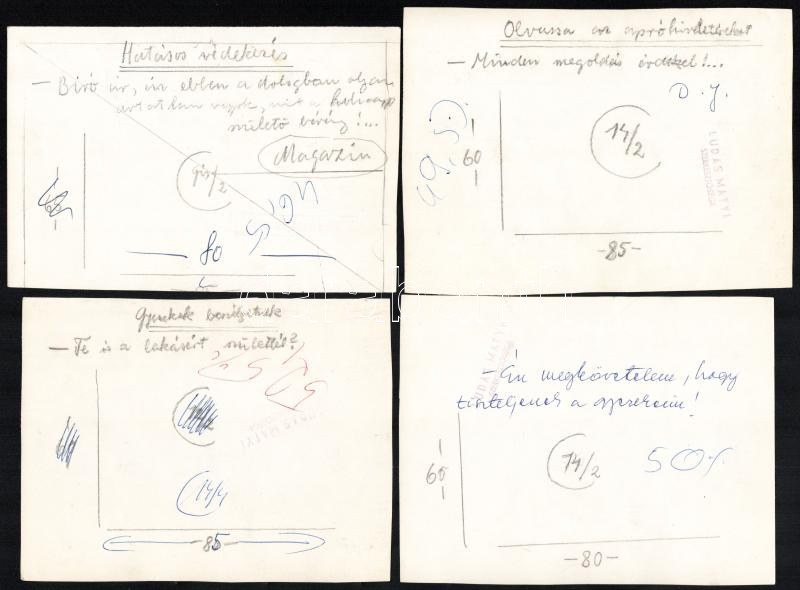 Hatásos védekezés
— Bíró úr, én ebben a dologban olyan
ártatlan vagyok, mint a holnap
születő bárány!...
Magazin
80
Olvassa az apróhirdetéseket
— Minden megoldás érdekel!...
D. J.
49,5)
14/2
-60-
-85-
LUDAS MATYI
Gyerekek beszélgetnek
— Te is a lakásért születtél?
LUDAS MATYI
14/4
-85-
LUDAS MATYI
— Én megkövetelem, hogy
tiszteljenek a gyerekeim!
14/2
50%
60
-80-